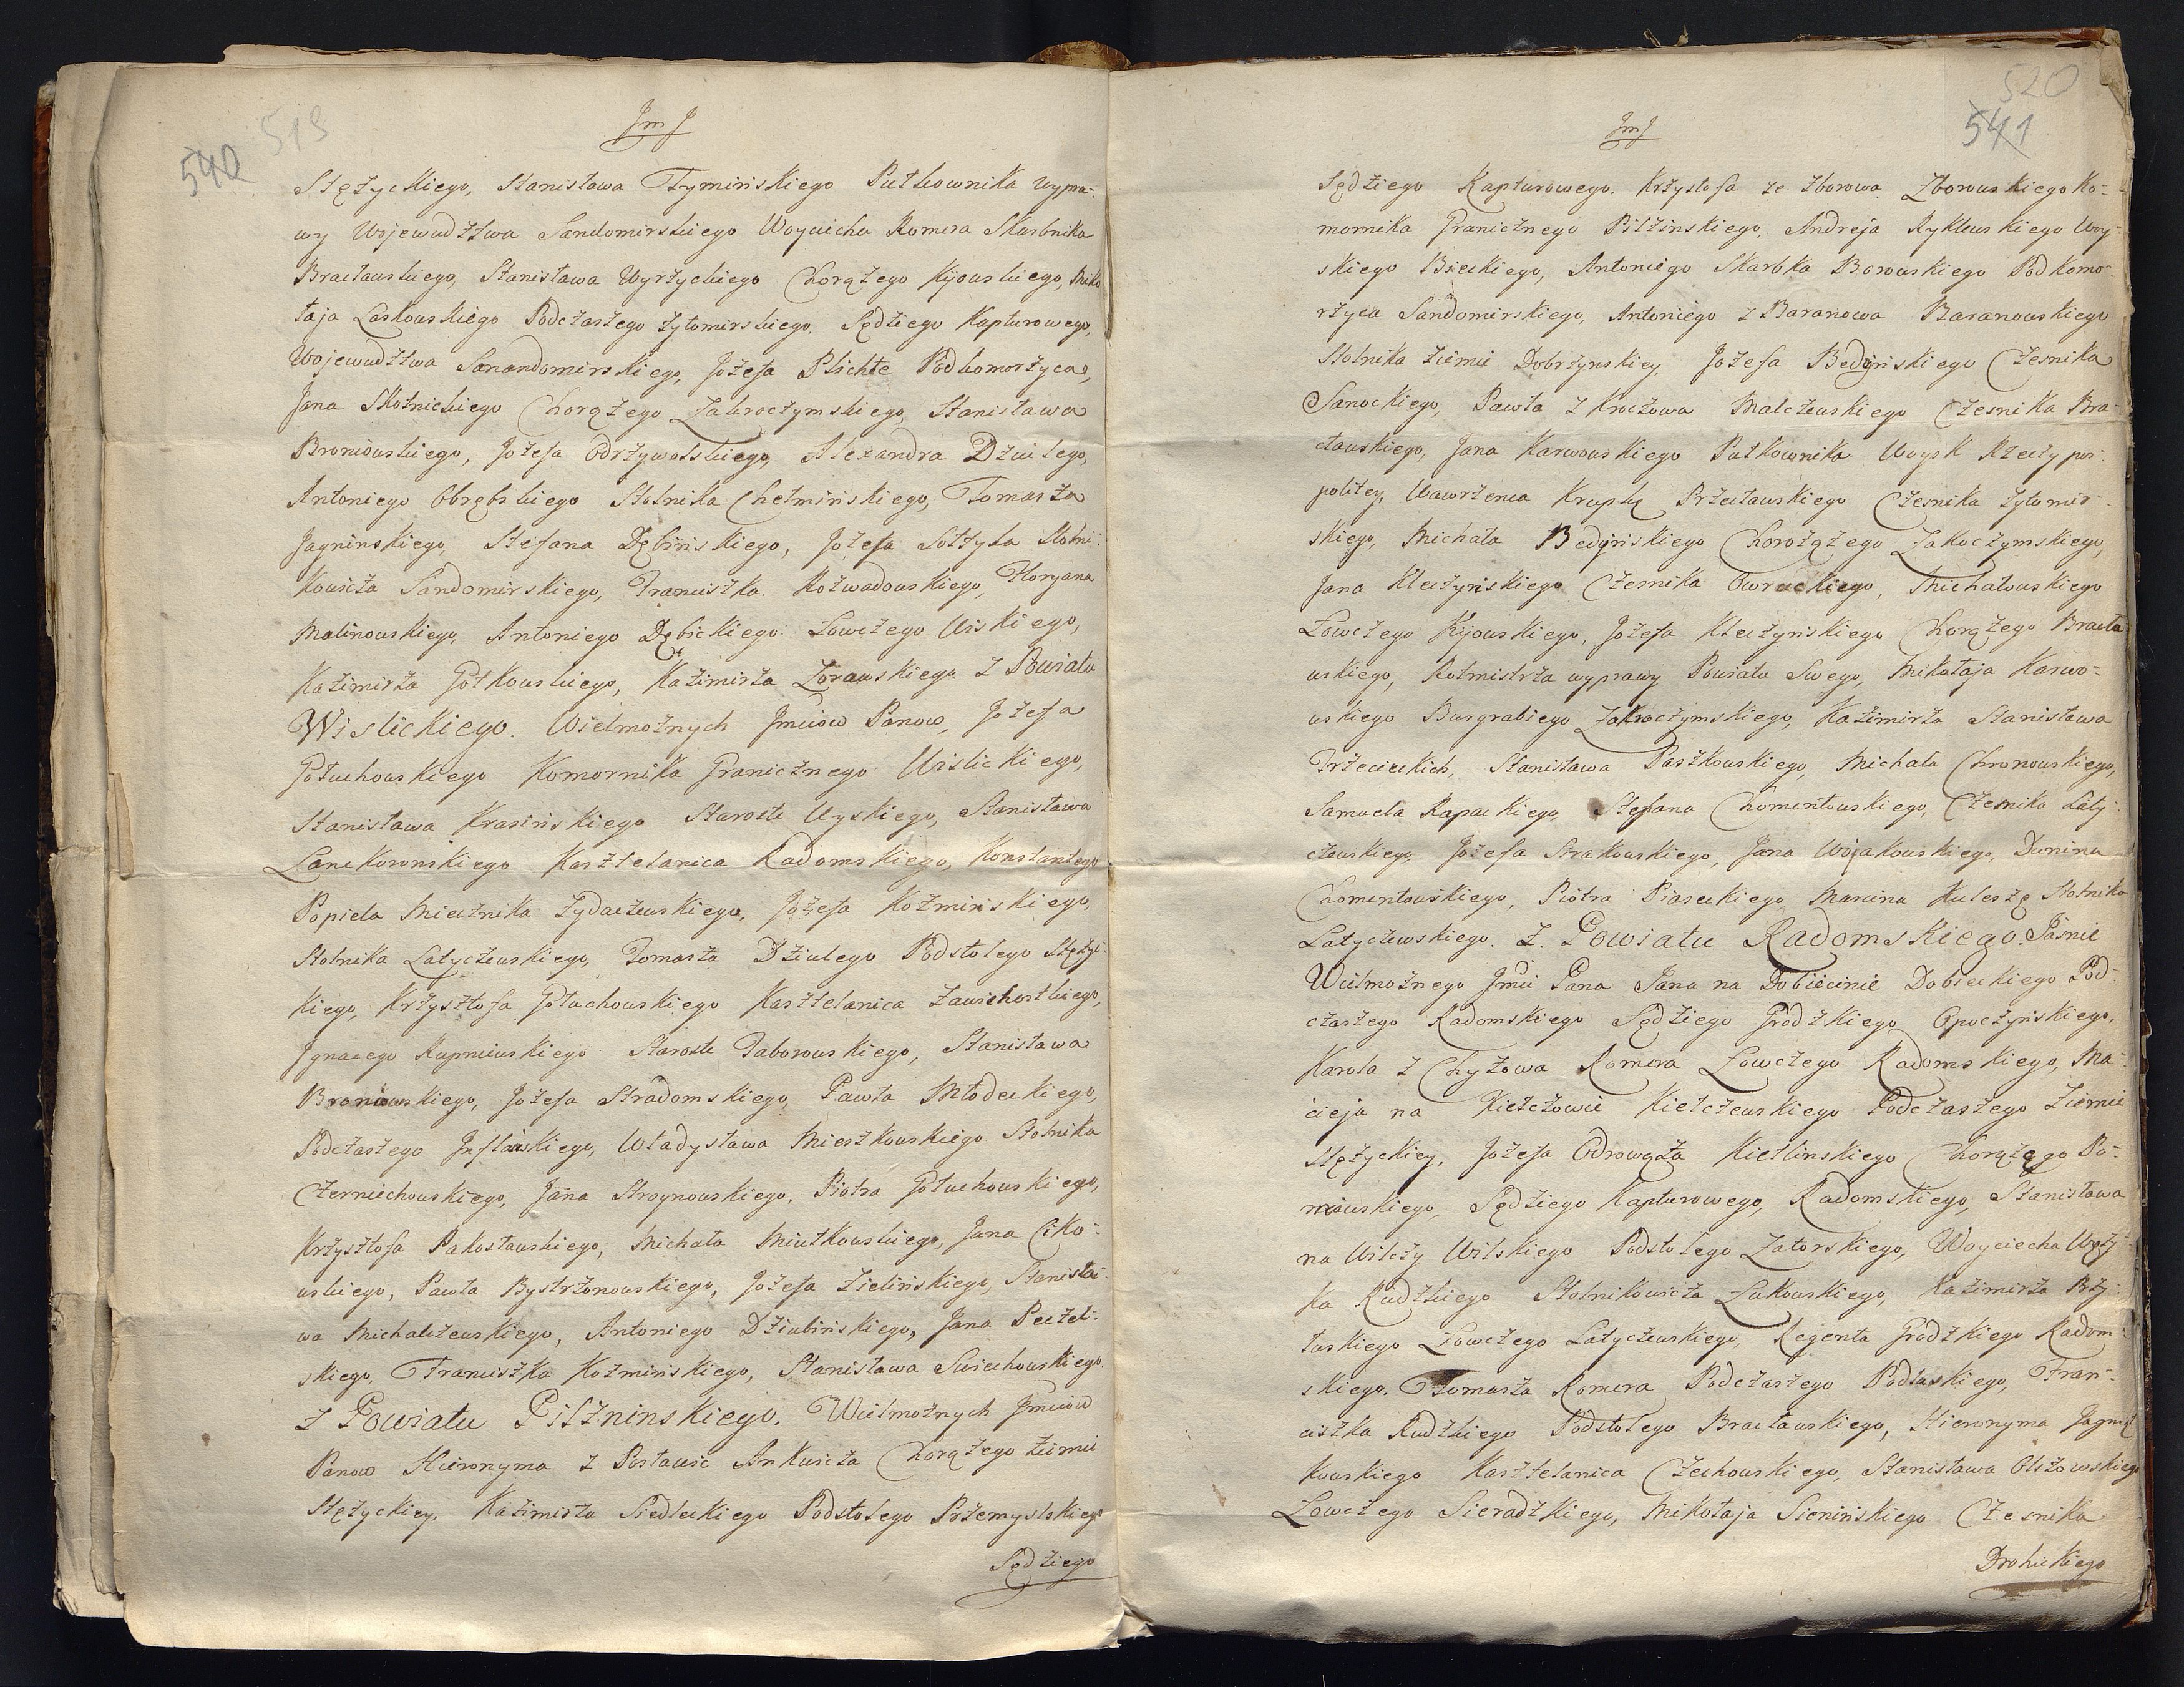 519
540
JmJ
Stężyckiego, Stanisława Tymińskiego Pułkownika wypra-
wy Wojewudztwa Sandomirskiego Woyciecha Romera Skarbnika
Bracławskiego, Stanisława Wyrzyckiego Chorążego Kijowskiego, Miko
łaja Laskowskiego Podczaszego Żytomirskiego, Sędziego Kapturowego,
Wojewudztwa Sanandomirskiego, Jozefa Plichte Podkomorzyca,
Jana Skotnickiego Chorążego Zakroczymskiego, Stanisława
Broniowskiego, Jozefa Odrzywolskiego, Alexandra Dziulego,
Antoniego Obrębskiego Stolnika Chełmińskiego, Tomasza
Jagninskiego, Stefana Dębińskiego, Jozefa Sołtyka Stolni-
kowicza Sandomirskiego, Franciszka Rozwadowskiego, Floryana
Malinowskiego, Antoniego Dębickiego Łowczego Wiskiego,
Kazimirza Gołkowskiego, Kazimirza Zorawskiego z Powiatu
Wislickiego. Wielmożnych Jmciow Panow, Jozefa
Gołuchowskiego Komornika Granicznego Wislickiego,
Stanisława Krasińskiego Staroste Uyskiego, Stanisława
Lanckoronskiego Kasztelanica Radomskiego, Konstantego
Popiela Miecznika Żydaczewskiego, Jozefa Kozmińskiego,
Stolnika Latyczewskiego, Tomasza Dziulego Podstolego Stężyc-
kiego, Krzysztofa Gołuchowskiego Kasztelanica Zawichostkiego,
Jgnacego Kupniewskiego Staroste Taborowskiego, Stanisława
Broniowskiego, Jozefa Stradomskiego, Pawła Młodeckiego,
Podczaszego Jnflanskiego, Władysława Mieszkowskiego Stolnika
Czerniechowskiego, Jana Stroynowskiego, Piotra Gołuchowskiego,
Krzysztofa Pakosławskiego, Michała Mietkowskiego, Jana Ciko-
wskiego, Pawła Bystrzonowskiego, Jozefa Zielińskiego, Stanisła-
wa Michalczewskiego, Antoniego Dziubińskiego, Jana Peczel-
skiego, Franciszka Kozmińskiego, Stanisława Suchowskiego.
z Powiatu Pilzninskiego. Wielmożnych Jmciow
Panow Hieronyma z Postawic Ankwicza Chorążego Ziemi
Stężyckiey, Kazimirza Siedleckiego Podstolego Przemyslskiego
Sędziego
520
541
JmJ
Sędziego Kapturowego. Krzysztofa ze Zborowa Zborowskiego Ko-
mornika Granicznego Pilzinskiego, Andreja Rykłowskiego Woy-
skiego Bieckiego, Antoniego Skarbka Borowskiego Podkomo-
rzyca Sandomirskiego, Antoniego z Baranowa Baranowskiego
Stolnika Ziemie Dobrzynskiey, Jozefa Bedońskiego Czesnika
Sanockiego, Pawła z Kroczowa Malczewskiego Czesnika Bra-
cławskiego, Jana Karwowskiego Pułkownika Woysk Rzeczypos-
politey, Wawrzenca Krupkę Przecławskiego Czesnika Żytomir-
skiego, Michała Bedońskiego Chorożążego Zakoczymskiego,
Jana Kleczyńskiego Czesnika Owruckiego, Michałowskiego
Łowczego Kijowskiego, Jozefa Kleczyńskiego Chorążego Bracła
wskiego, Rotmistrza wyprawy Powiatu Swego, Mikołaja Karwo-
wskiego Burgrabiego Zakroczymskiego, Kazimirza Stanisława
Trzecieckich, Stanisława Paszkowskiego, Michała Chronowskiego,
Samuela Rapackiego Stefana Chomentowskiego, Czesnika Laty-
czewskiego Jozefa Srakowskiego, Jana Wojakowskiego, Dunina
Chomentowskiego, Piotra Piaseckiego, Marcina Kuleszę Stolnika
Latyczewskiego. Z. Powiatu Radomskiego. Jaśnie
Wielmożnego Jmci Pana Jana na Dobiecinie Dobieckiego Pod-
czaszego Radomskiego Sędziego Grodzkiego Opoczyńskiego,
Karola z Chyżowa Romera Łowczego Radomskiego, Ma-
cieja na Kiełczowie Kiełczewskiego Podczaszego Ziemie
Stężyckiey, Jozefa Odrowąża Kietlinskiego Chorążego Po-
miawskiego, Sędziego Kapturowego, Radomskiego, Stanisława
na Wilczy Wilskiego Podstolego Zatorskiego, Woyciecha Węży
ka Rudzkiego Stolnikowicza Łukowskiego, Kazimirza Bży-
tuskiego Łowczego Latyczewskiego, Regenta Grodzkiego Radom-
skiego. Tomasza Romera Podczaszego Podlaskiego, Fran-
ciszka Rudzkiego Podstolego Bracławskiego, Hieronyma Jagniąt
kowskiego Kasztelanica Czechowskiego, Stanisława Olszowskiego
Łowczego Sieradzkiego, Mikołaja Sienińskiego Czesnika
Drohickiego